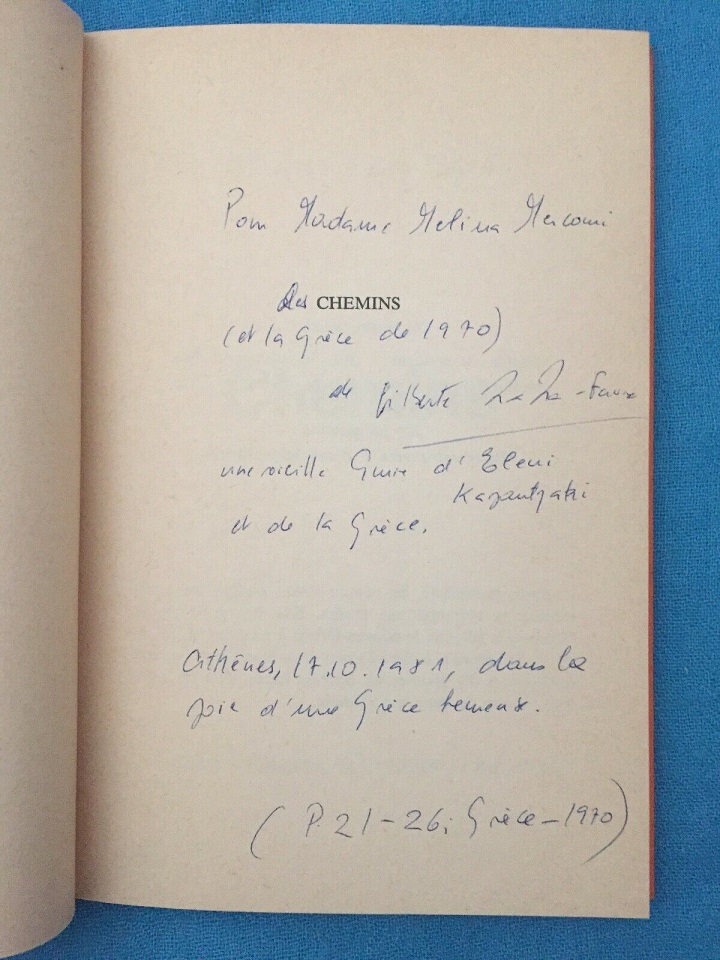 Pour Madame Melina Mercouri
des CHEMINS
(et la Grèce de 1970)
de Gilberte
une vieille amie d'Eleni
Kazantzaki
et de la Grèce.
Athènes, 17.10.1981, dans la
joie d'une Grèce heureuse.
(P. 21-26; Grèce-1970)